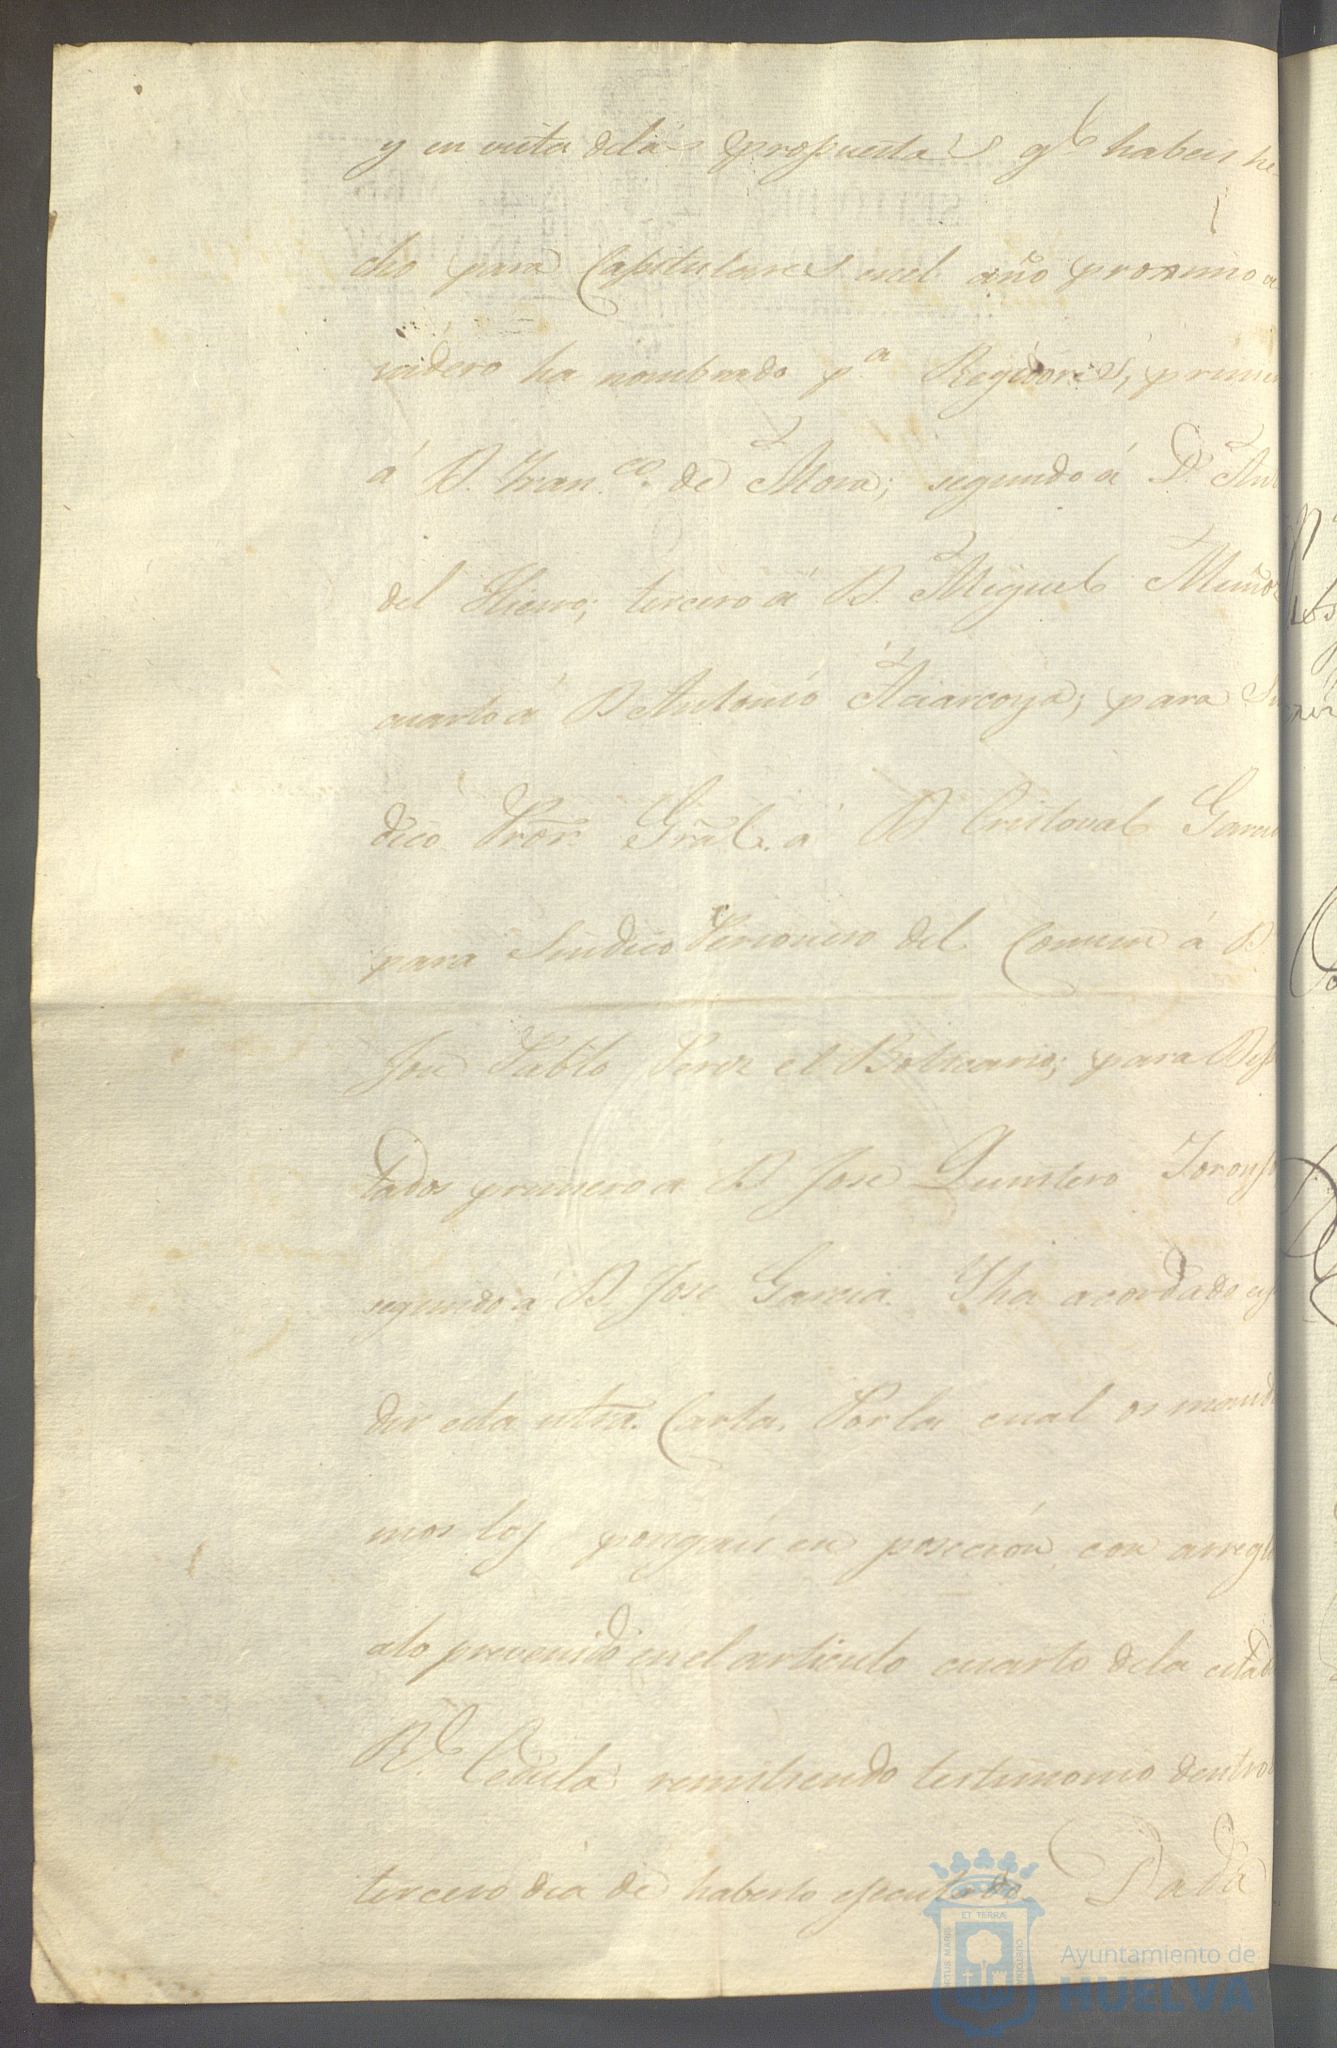 y en vista delas propuestas qe. habeis he-
cho para Capitulares enel año proximo a
videro ha nombrado pa. Regidores, primer
á D. Franco. de Mora; segundo á Dn. Ant
del Hierro; tercero á D. Miguel Muñoz
cuarto á D Antonio Aciarcoya; para Sin
dico Pror. Gral. á D. Cristoval Garcia
para Sindico Personero del Comun á D
José Pablo Perez el Boticario; para Dipu
tados primero á D José Quintero
segundo á D. José Garcia. Y ha acordado esp
dir esta ntra. Carta. Por la cual os manda
mos los pongais en poseción, con arreglo
alo prevenido enel articulo cuarto dela citada
Rl. Cedula remitiendo testimonio dentro
tercero dia de haberlo ejecutado. Dada
Ayuntamiento de
HUELVA